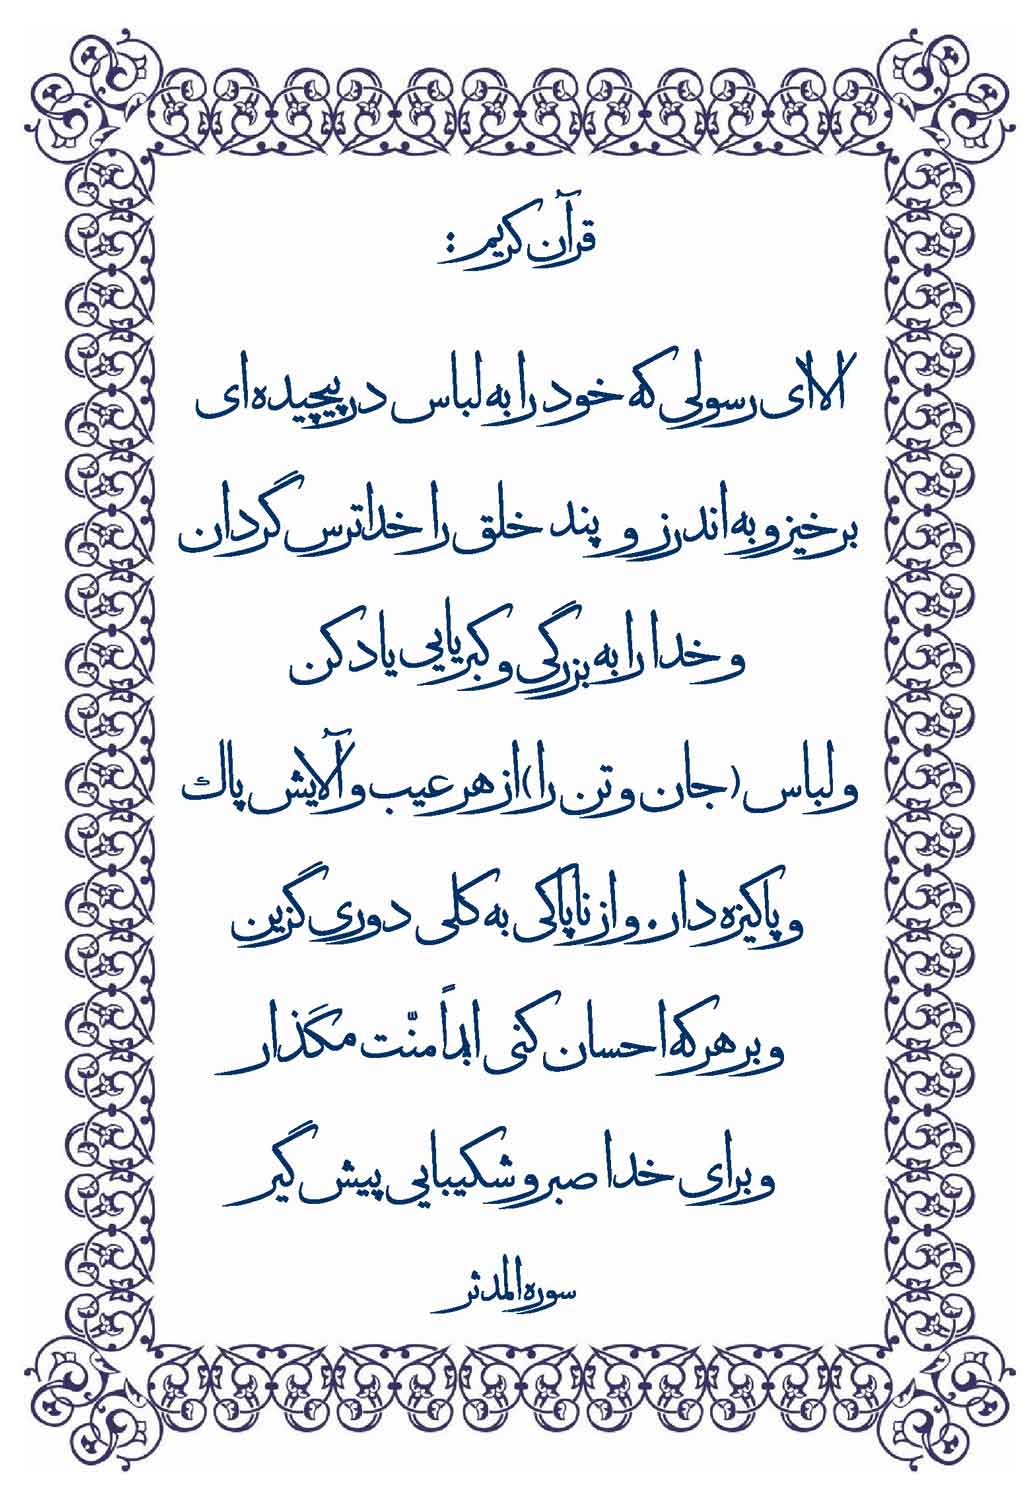 قرآن کریم :
الا ای رسولی که خود را به لباس در پیچیده ای
برخیز و به اندرز و پند خلق را خداترس گردان
و خدا را به بزرگی و کبریایی یاد کن
و لباس (جان و تن را) از هر عیب و آلایش پاک
و پاکیزه دار . و از ناپاکی به کلی دوری گزین
و بر هر که احسان کنی ابداً منّت مگذار
و برای خدا صبر و شکیبایی پیش گیر
سوره المدثر